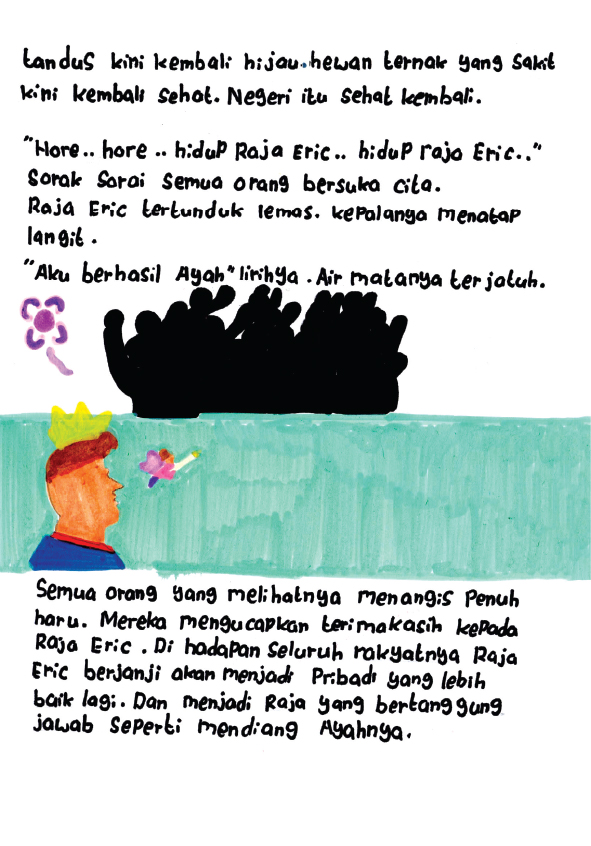 tandus kini kembali hijau. hewan ternak yang sakit
kini kembali sehat. Negeri itu sehat kembali.
"Hore.. hore .. hidup Raja Eric.. hidup raja Eric.."
Sorak Sorai semua orang bersuka cita.
Raja Eric tertunduk lemas. kepalanya menatap
langit.
"Aku berhasil Ayah" lirihya. Air matanya terjatuh.
Semua orang yang melihatnya menangis penuh
haru. Mereka mengucapkan terimakasih kepada
Raja Eric. Di hadapan seluruh rakyatnya Raja
Eric berjanji akan menjadi Pribadi yang lebih
baik lagi. Dan menjadi Raja yang bertanggung
jawab seperti mendiang Ayahnya.